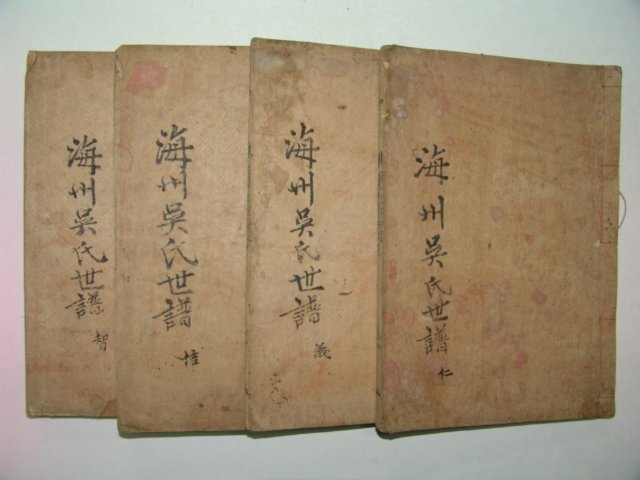 海州吳氏世譜
仁
海州吳氏世譜
義
海州吳氏世譜
海州吳氏世譜
智